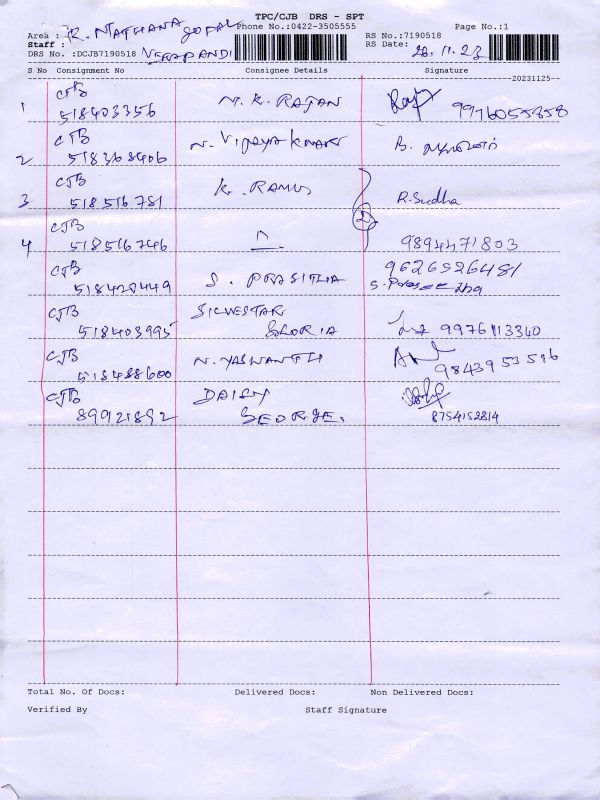 TPC/CJB DRS - SPT
R. NATHANA GOPAL
Phone No.:0422-3505555 Page No.:1
Area : RS No.:7190518
Staff : RS Date: 28.11.23
DRS No. :DCJB7190518 VERAPANDI
S No Consignment No Consignee Details Signature
20231125
1 CJB 518403356 N. K. RAJAN Raj 9976055858
2 CJB 518368406 N. VIJAYA KMAR B.
3 CJB 518516781 K. RAMUS R.Sudha
2
4 CJB 518516746 " 9894471803
CJB 518428449 S. PRASITHA 9626526481
CJB 518403995 SILVESTAR GLORIA 9976113340
CJB 518488600 N. YASWANTH 9843953596
CJB 89921892 DAISY GEORGE. 8754152814
Total No. Of Docs: Delivered Docs: Non Delivered Docs:
Verified By Staff Signature